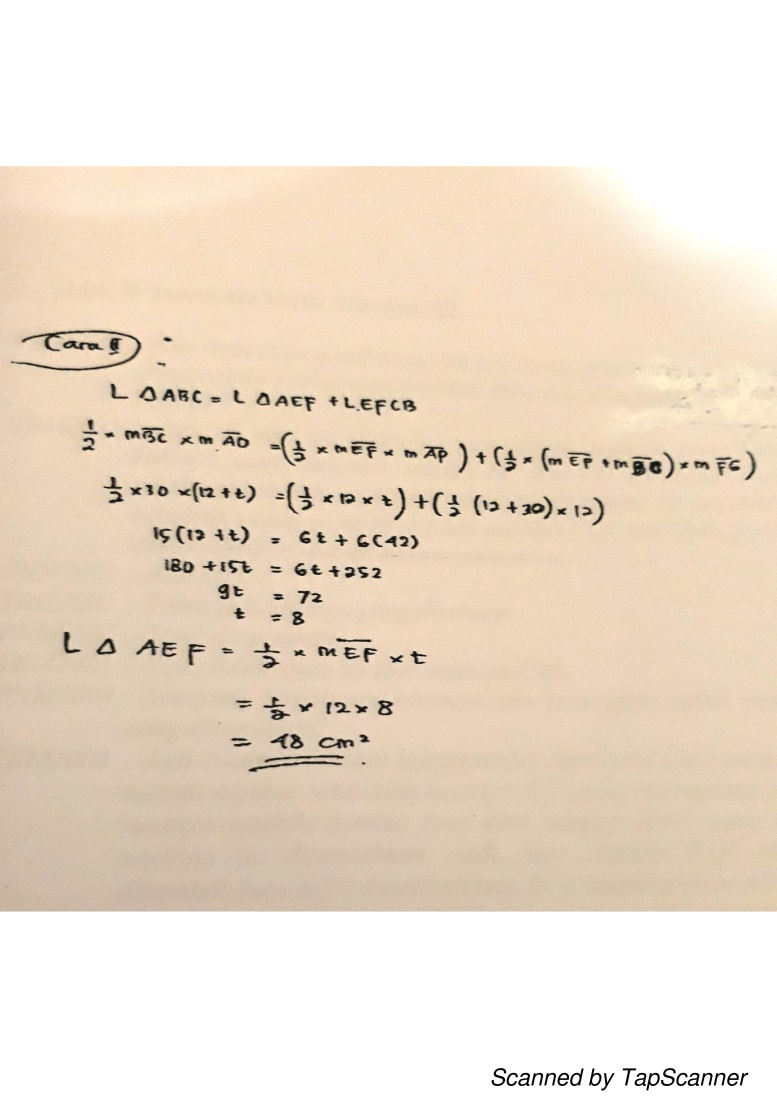 Cara II :
L Δ ABC = L Δ AEF + L.EFCB
1/2 × mBC × m.AD = (1/2 × mEF × m AP) + (1/2 × (m EF + mBC) × m FG)
1/2 × 30 × (12 + t) = (1/2 × 12 × t) + (1/2 (12 + 30) × 12)
15 (12 + t) = 6t + 6(42)
180 + 15t = 6t + 252
9t = 72
t = 8
L Δ AEF = 1/2 × mEF × t
= 1/2 × 12 × 8
= 48 cm²
Scanned by TapScanner